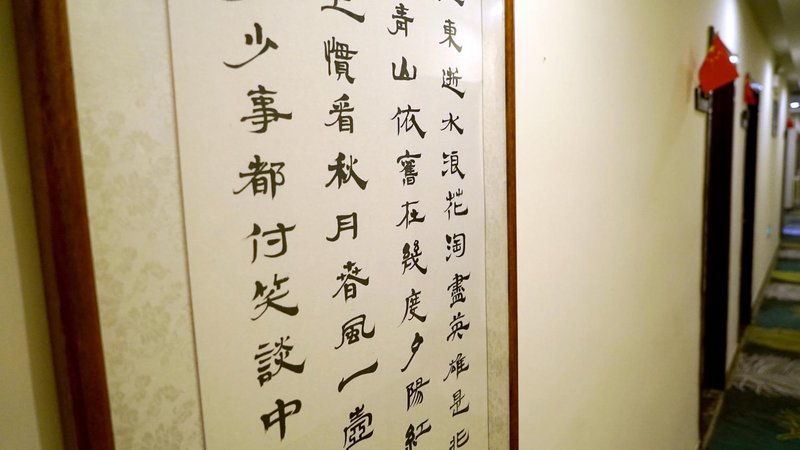 東逝水浪花淘盡英雄是非
青山依舊在幾度夕陽紅
慣看秋月春風一壺
少事都付笑談中